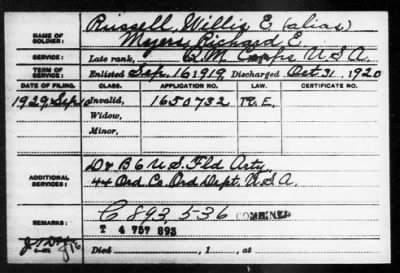 NAME OF SOLDIER: Russell, Willis E (alias)
Meyers, Richard E.
SERVICE: Late rank, Q M Corps U S A
TERM OF SERVICE: Enlisted Sep. 16 1919 Discharged Oct 31, 1920
DATE OF FILING. CLASS. APPLICATION NO. LAW. CERTIFICATE NO.
1929 Sep Invalid, 1650732 R. E.
Widow,
Minor,
D & B 6 U S. Fld Arty
ADDITIONAL SERVICES: 44 Ord Co. Ord Dept. U. S. A.
C 893,536 COMBINED
REMARKS: T 4 757 893
Died , 1 , at